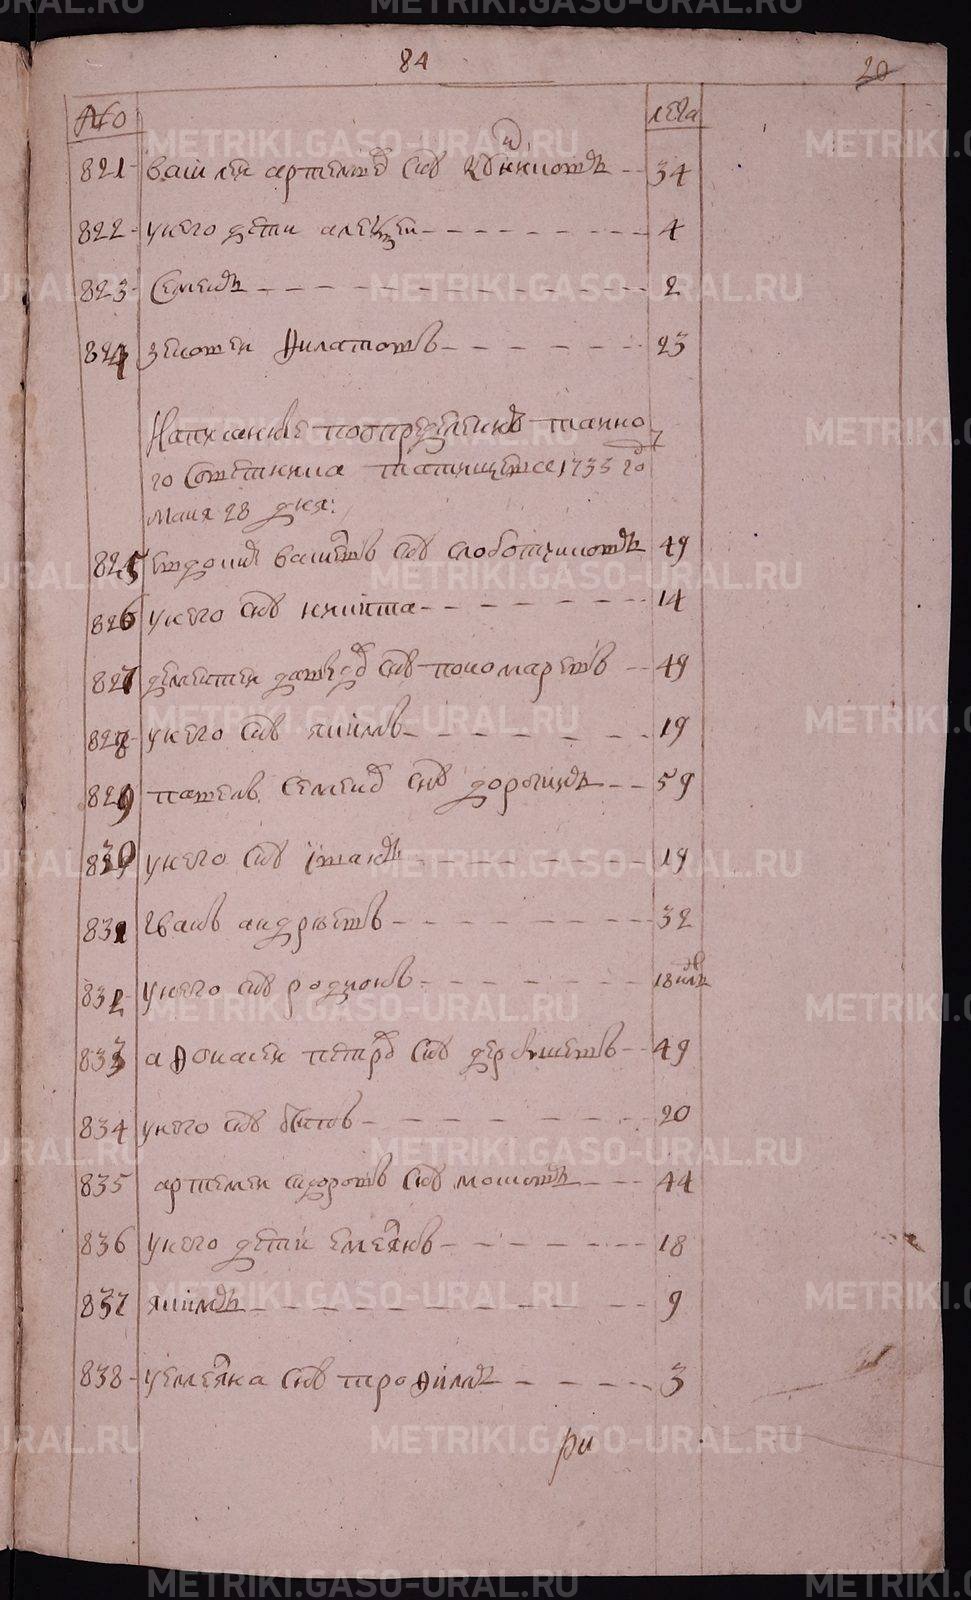 84
20
№ лета
821 Василей Артемьев снъ 34
822 у него дети Алеѯей 4
823 Семенъ 2
824 Зеновей Филатовъ 23
Написанные по определению тайно
го советника Татищева 1735 году
маия 28 дня:
825 Евдоким Васильевъ снъ Слоботчиковъ 49
826 у него снъ Никита 14
827 Дементей Давыдов снъ Пономаревъ 49
828 у него снъ Якимъ 19
829 Павелъ Семенов снъ Дорогинъ 59
830 у него снъ Иванъ 19
831 Иванъ Андреевъ 32
832 у него снъ Родионъ 18
833 Афонасей Петров снъ Дербышевъ 49
834 у него снъ 20
835 Артемей Сидоровъ снъ Мошовъ 44
836 у него дети Емельянъ 18
837 Якимъ 9
838 у Емельяна снъ Трофимъ 3
ри
METRIKI.GASO-URAL.RU